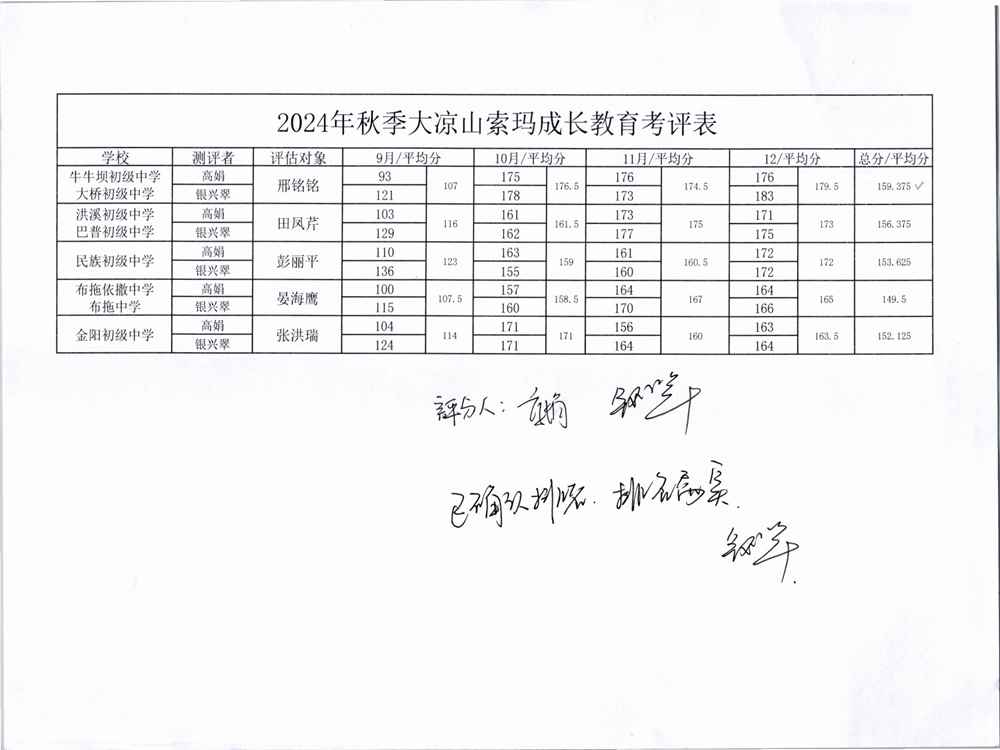 2024年秋季大凉山索玛成长教育考评表
学校 测评者 评估对象 9月/平均分 10月/平均分 11月/平均分 12/平均分 总分/平均分
牛牛坝初级中学 高娟 邢铭铭 93 107 175 176.5 176 174.5 176 179.5 159.375 ✓
大桥初级中学 银兴翠 121 178 173 183
洪溪初级中学 高娟 田凤芹 103 116 161 161.5 173 175 171 173 156.375
巴普初级中学 银兴翠 129 162 177 175
民族初级中学 高娟 彭丽平 110 123 163 159 161 160.5 172 172 153.625
银兴翠 136 155 160 172
布拖依撒中学 高娟 晏海鹰 100 107.5 157 158.5 164 167 164 165 149.5
布拖中学 银兴翠 115 160 170 166
金阳初级中学 高娟 张洪瑞 104 114 171 171 156 160 163 163.5 152.125
银兴翠 124 171 164 164
評分人: 高娟 银兴翠
已确认排名. 排名属实.
银兴翠.